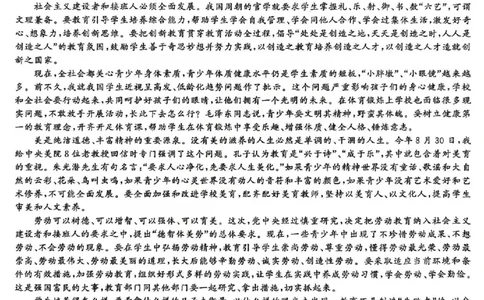 社会主义建设者和接班人必须全面发展。我国周朝的官学就要求学生掌握礼、乐、射、御、书、数“六艺”,可谓
文理兼备。要教育引导学生培养综合能力,帮助学生学会自我管理、学会同他人合作、学会过集体生活,激发好奇
心、想象力,培养创新思维。要把创新教育贯穿教育活动全过程,倡导“处处是创造之地,天天是创造之时,人人是
创造之人”的教育氛围,鼓励学生善于奇思妙想并努力实践,以创造之教育培养创造之人才,以创造之人才造就创
新之国家。
现在,全社会都关心青少年身体素质,青少年体质健康水平仍是学生素质的短板,“小胖墩”、“小眼镜”越来越
多。前不久,我就我国学生近视呈高发、低龄化趋势问题作了批示。这个问题严重影响孩子们的身心健康,学校
和全社会要行动起来,共同呵护好孩子们的眼睛,让他们拥有一个光明的未来。在体育锻炼上学校也面临很多现
实问题,不敢放手开展活动,长此下去怎么行?毛泽东同志说,青少年要文明其精神,野蛮其体魄。要树立健康第
一的教育理念,开齐开足体育课,帮助学生在体育锻炼中享受乐趣、增强体质、健全人格、锤炼意志。
美是纯洁道德、丰富精神的重要源泉。没有美的滋养的人生必然是单调的、干涸的人生。今年8月30日,我
给中央美院8位老教授回信时专门强调了这个问题。孔子认为教育是“兴于诗”、“成于乐”,其中就包含着对美育
的重视。朱光潜先生有句名言,“要求人心净化,先要求人生美化。”如果青少年的精神世界没有童话、歌谣和大自
然的云彩、花朵、鸟叫虫鸣,如果青少年的心灵世界没有动人的音符和丰富的颜色,如果青少年没有艺术爱好和艺
术修养,不可能全面发展。要全面加强和改进学校美育,配齐配好美育教师,坚持以美育人、以文化人,提高学生
审美和人文素养。
劳动可以树德、可以增智、可以强体、可以育美。这次,党中央经过慎重研究,决定把劳动教育纳入社会主义
建设者和接班人的要求之中,提出“德智体美劳”的总体要求。现在,一些青少年中出现了不珍惜劳动成果、不想
劳动、不会劳动的现象。要在学生中弘扬劳动精神,教育引导学生崇尚劳动、尊重劳动,懂得劳动最光荣、劳动最
崇高、劳动最伟大、劳动最美丽的道理,长大后能够辛勤劳动、诚实劳动、创造性劳动。要采取适应当前环境和条
件的有效措施,加强劳动教育,组织好形式多样的劳动实践,让学生在实践中养成劳动习惯,学会劳动、学会勤俭。
这是强国富民的大事,教育部门同其他部门要一起研究,拿出措施,切实抓起来。